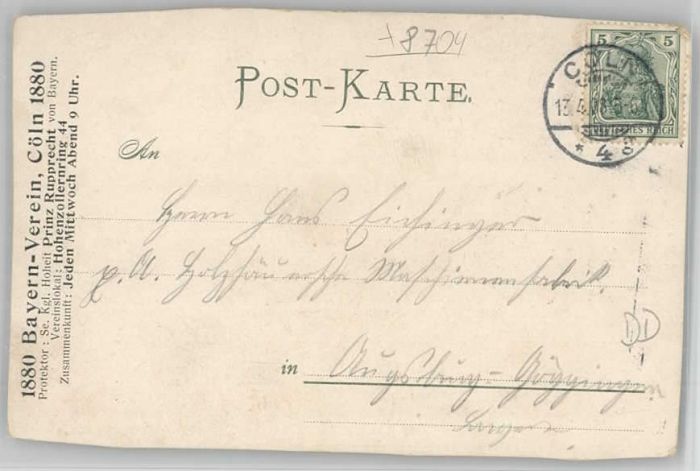 8704
POST-KARTE.
5 5
DEUTSCHES REICH
CÖLN
13.4.
* 4
An
Herrn Hans Eichinger
p. A. Holzhäuer'sche Maschinenfabrik.
in Augsburg-Göggingen
Bayern
DD
1880 Bayern-Verein, Cöln 1880
Protektor: Se. Kgl. Hoheit Prinz Rupprecht von Bayern.
Vereinslokal: Hohenzollernring 44
Zusammenkunft: Jeden Mittwoch Abend 9 Uhr.